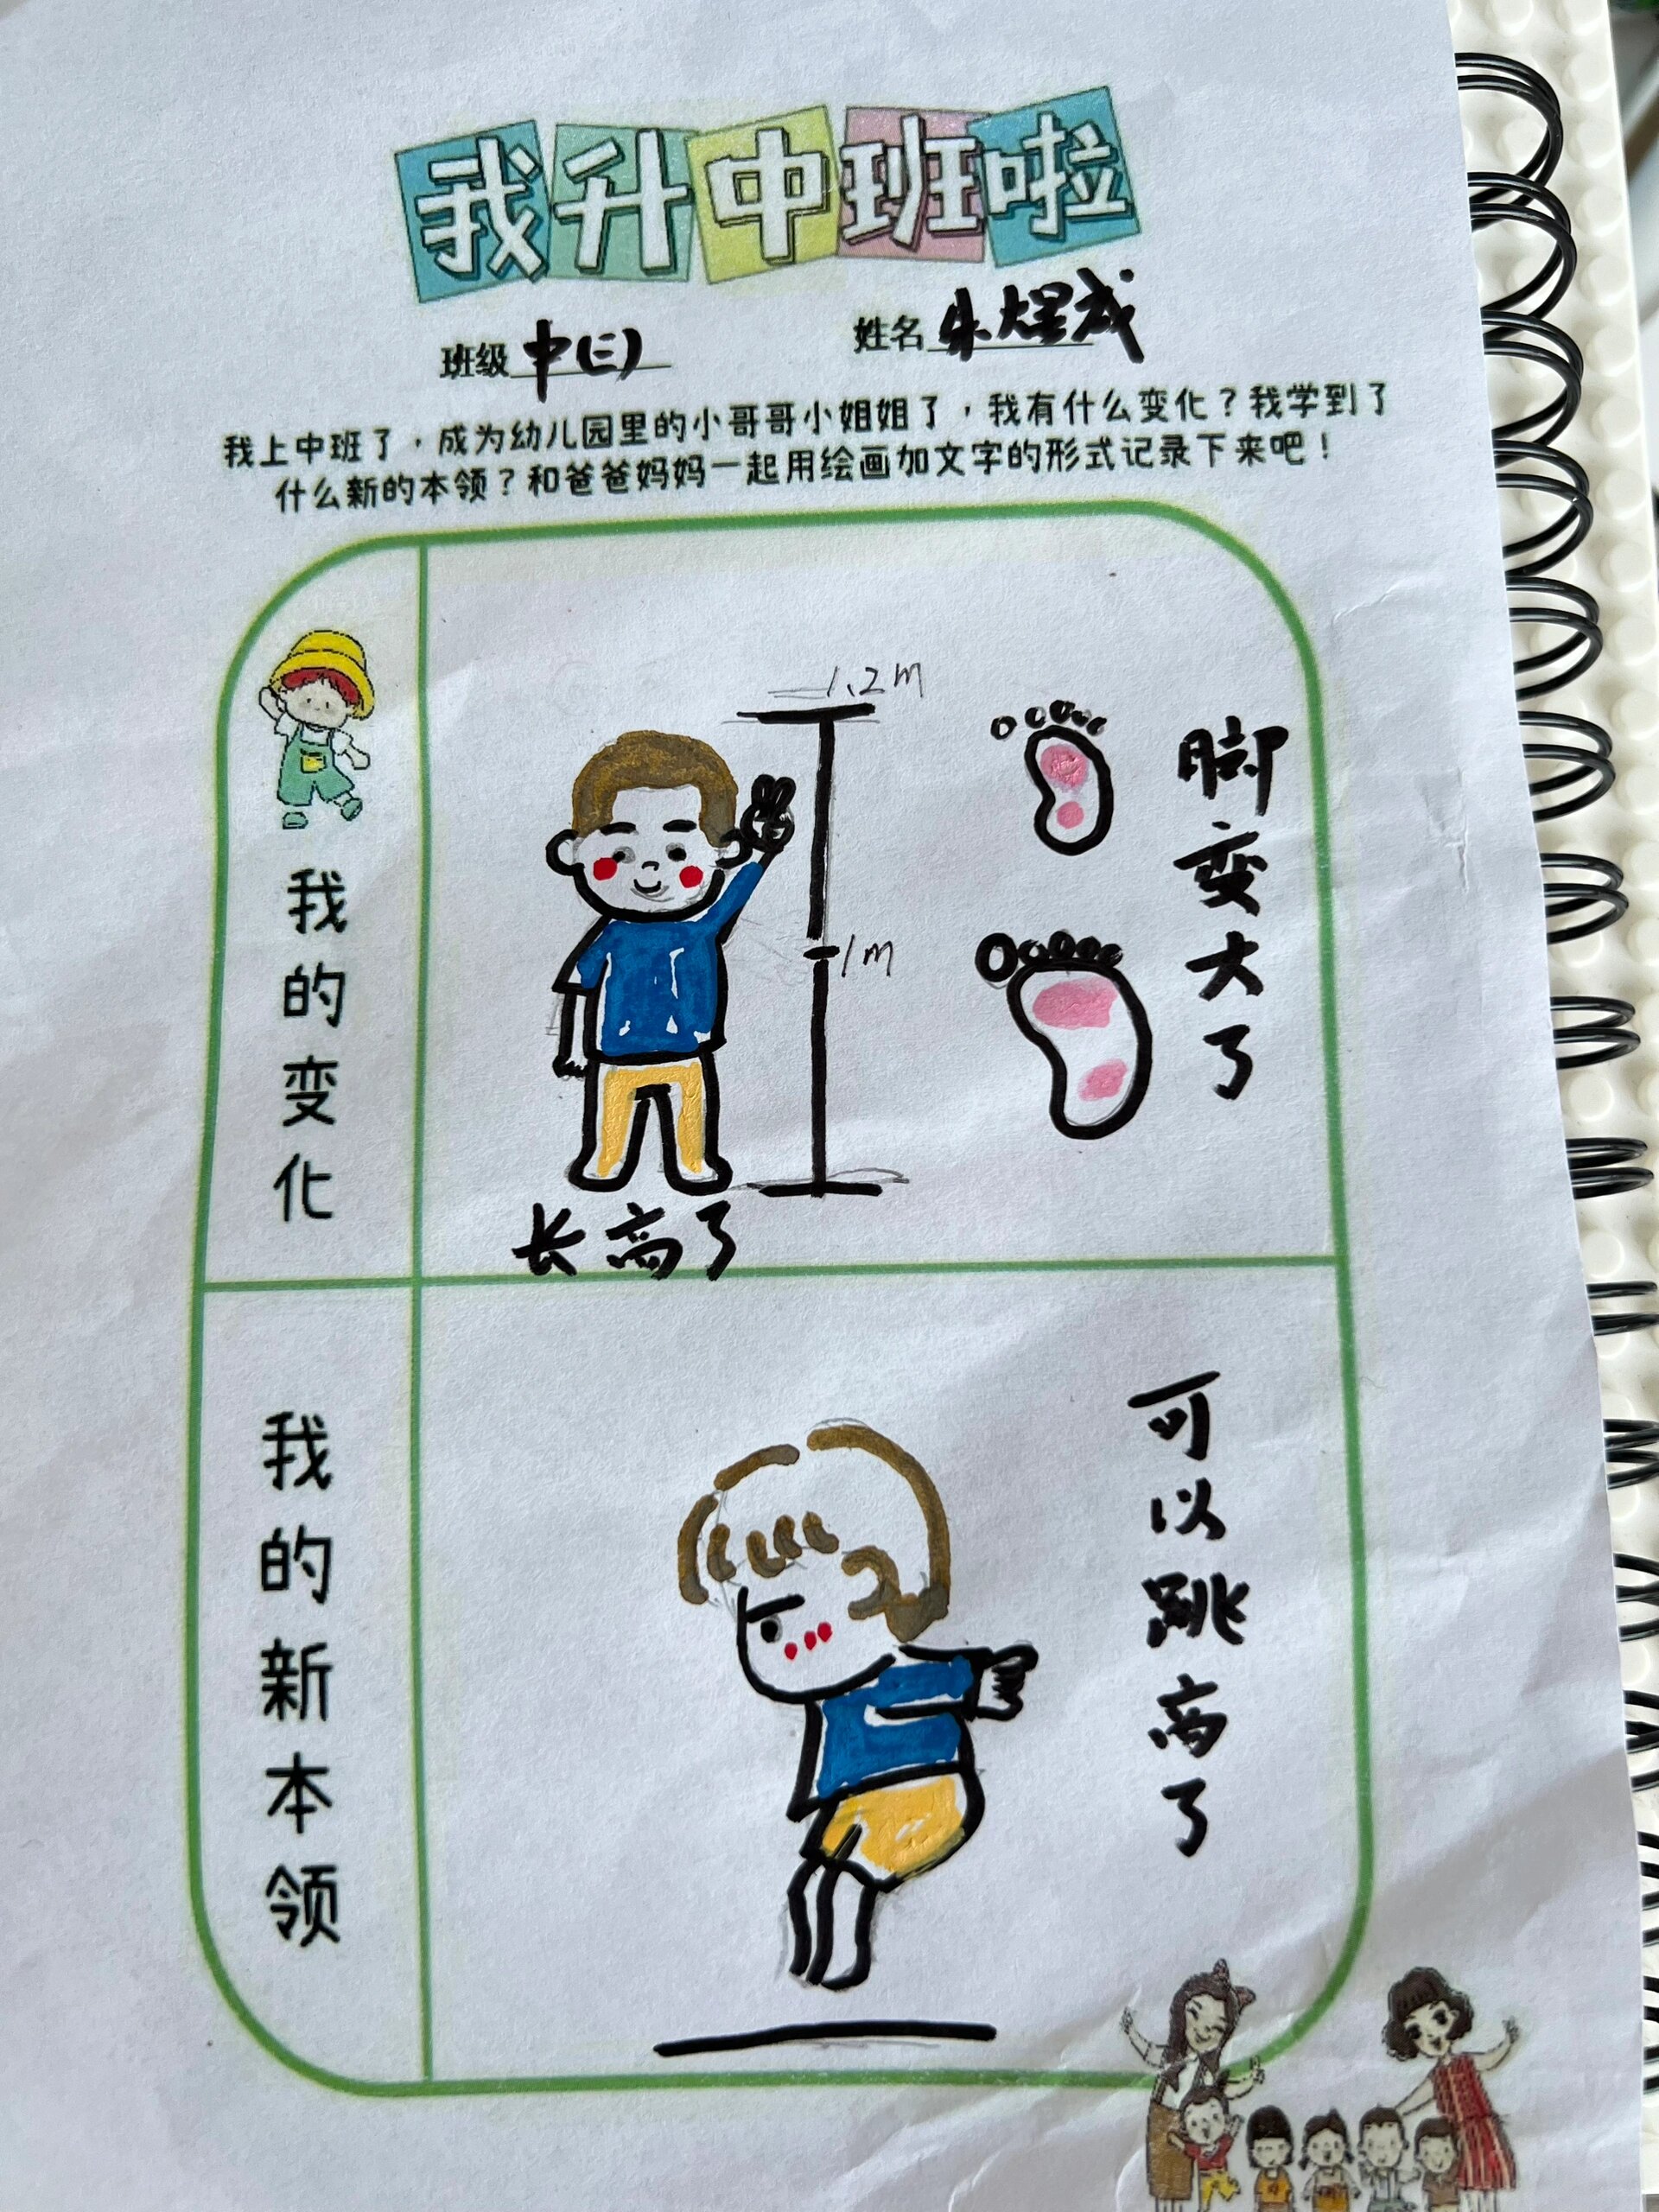 我升中班啦
班级 中(三) 姓名 朱煜成
我上中班了，成为幼儿园里的小哥哥小姐姐了，我有什么变化？我学到了
什么新的本领？和爸爸妈妈一起用绘画加文字的形式记录下来吧！
我的变化
1.2m
1m
长高了
脚变大了
我的新本领
可以跳高了